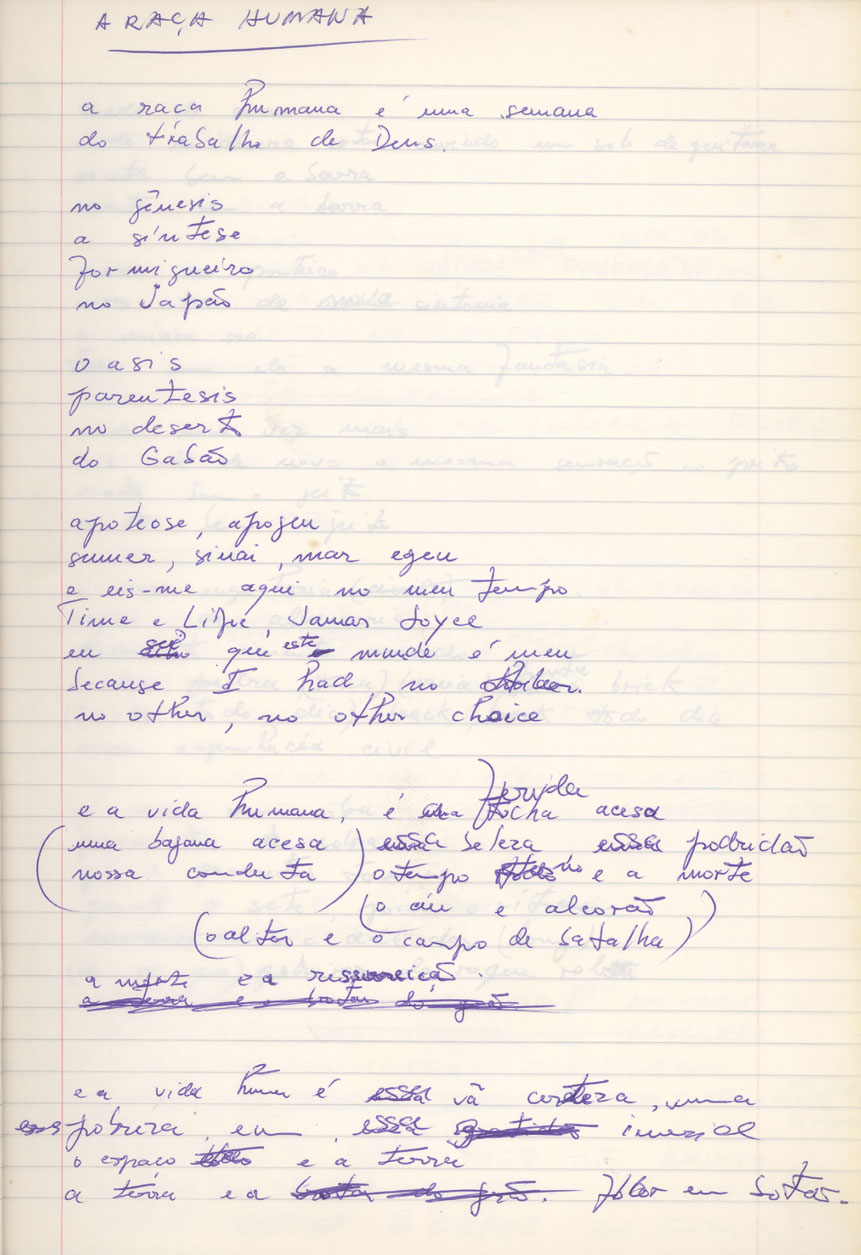 A RAÇA HUMANA
a raça humana é uma semana
do trabalho de Deus.
no gênesis
a síntese
formigueiro
no Japão
oasis
parentesis
no deserto
do Gabão
apoteose, apogeu
sumer, sinai, mar egeu
e eis-me aqui no meu tempo
Time e Life James Joyce
eu sei que este mundo é meu
because I had no
no other, no other choice
ferida
e a vida humana, é uma tocha acesa
(uma bagana acesa) essa beleza essa podridão
nossa conduta) o tempo e a morte
(o céu e alcorão)
(o altar e o campo de batalha)
a morte e a ressurreição.
a terra e o botão do grão
e a vida é essa vã certeza, uma
essa pobreza, em, essa
o espaço e a terra
a terra e a botão do grão. em botão.